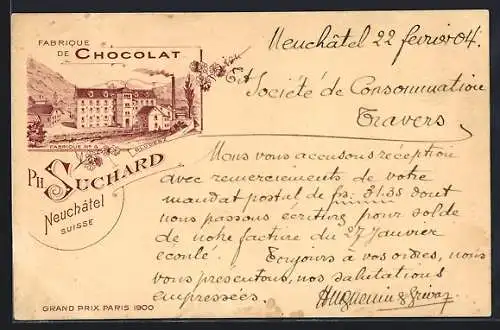 FABRIQUE
DE CHOCOLAT
FABRIQUE No 5
BLUDENZ
PH. SUCHARD
Neuchâtel
SUISSE
GRAND PRIX PARIS 1900
Neuchâtel 22 février 04.
Société de Consommation
Travers
Nous vous accusons réception
avec remerciements de votre
mandat postal de frs. 31.35 dont
nous passons écriture pour solde
de notre facture du 27 Janvier
écoulé. Toujours à vos ordres, nous
vous présentons, nos salutations
empressées.